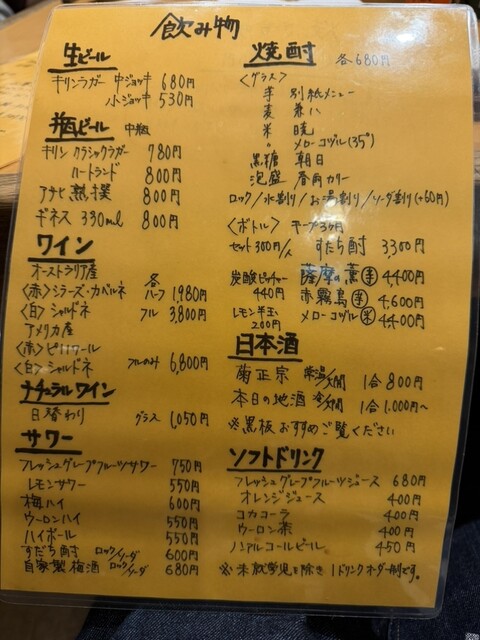 飲み物
生ビール
キリンラガー 中ジョッキ 680円
小ジョッキ 530円
瓶ビール 中瓶
キリン クラシックラガー 780円
ハートランド 800円
アサヒ 熟撰 800円
ギネス 330ml 800円
ワイン
オーストラリア産
〈赤〉シラーズ・カベルネ 各ハーフ 1,980円
〈白〉シャルドネ フル 3,800円
アメリカ産
〈赤〉ピノノワール
〈白〉シャルドネ フルのみ 6,800円
ナチュラルワイン
日替わり グラス 1,050円
サワー
フレッシュグレープフルーツサワー 750円
レモンサワー 550円
梅ハイ 600円
ウーロンハイ 550円
ハイボール 550円
すだち酎 ロック/ソーダ 600円
自家製梅酒 ロック/ソーダ 680円
焼酎 各680円
〈グラス〉
芋 別紙メニュー
麦 兼八
米 暁
〃 メローコヅル(35°)
黒糖 朝日
泡盛 春雨カリー
ロック/水割り/お湯割り/ソーダ割り(+60円)
〈ボトル〉 キープ3ヶ月
セット300円/人 すだち酎 3,300円
炭酸ピッチャー 440円
レモン半玉 200円
薩摩の薫 芋 4,400円
赤霧島 芋 4,600円
メローコヅル 米 4,400円
日本酒
菊正宗 常温/燗 1合 800円
本日の地酒 冷/燗 1合 1,000円~
※黒板おすすめご覧ください
ソフトドリンク
フレッシュグレープフルーツジュース 680円
オレンジジュース 400円
コカコーラ 400円
ウーロン茶 400円
ノンアルコールビール 450円
※未就学児を除き1ドリンクオーダー制です。